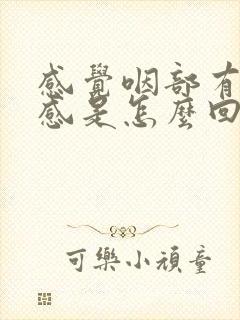 感覺咽部有
感是怎麼回
可樂小頑童